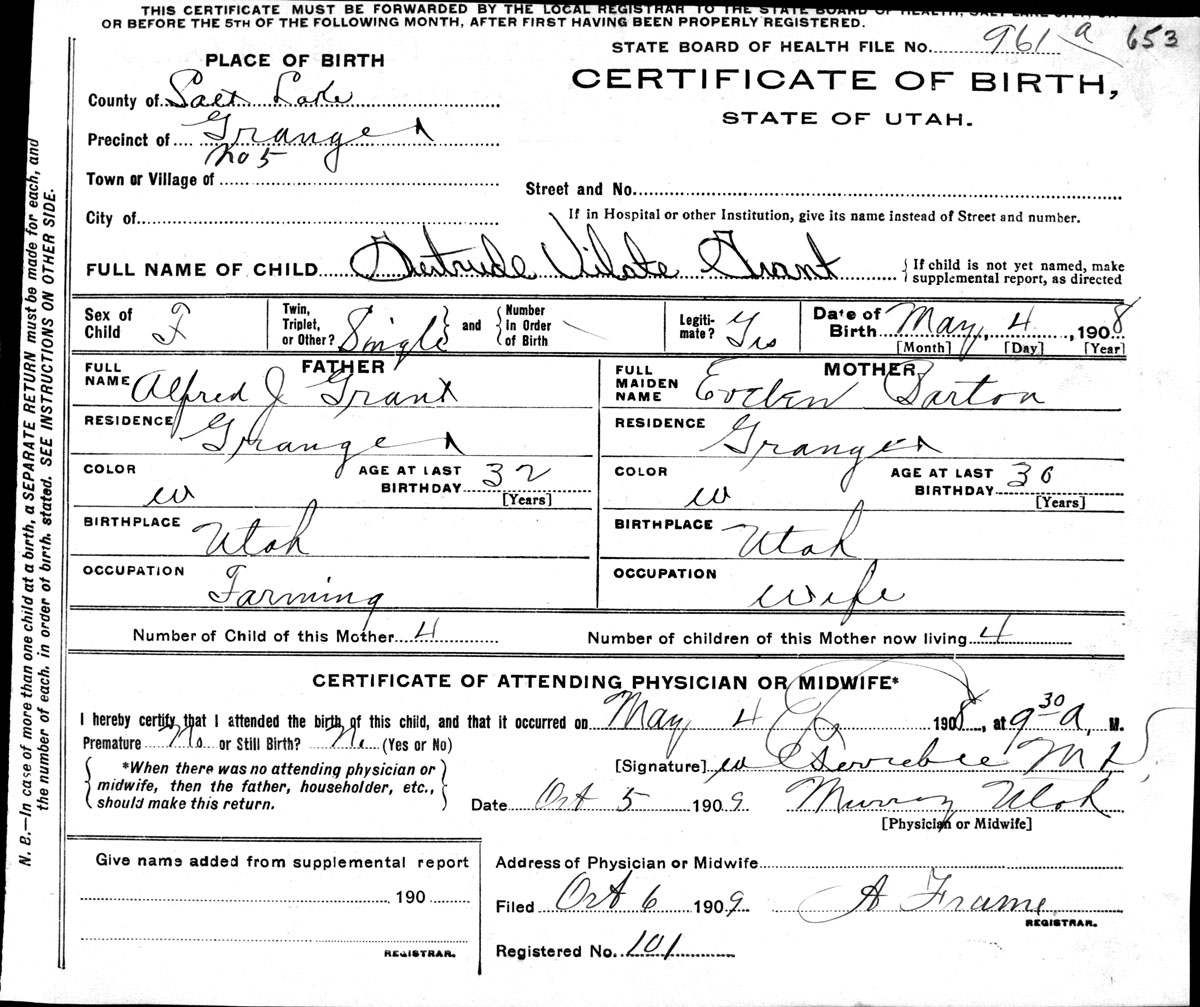 THIS CERTIFICATE MUST BE FORWARDED BY THE LOCAL REGISTRAR TO THE STATE BOARD OF HEALTH, SALT LAKE
OR BEFORE THE 5TH OF THE FOLLOWING MONTH, AFTER FIRST HAVING BEEN PROPERLY REGISTERED.
STATE BOARD OF HEALTH FILE No. 961 a 653
PLACE OF BIRTH
CERTIFICATE OF BIRTH,
STATE OF UTAH.
County of Salt Lake
Precinct of Granger
No 5
Town or Village of
Street and No.
City of
If in Hospital or other Institution, give its name instead of Street and number.
FULL NAME OF CHILD Gertrude Vilate Grant { If child is not yet named, make
supplemental report, as directed
Sex of Child F
Twin, Triplet, or Other? Single } and { Number in Order of Birth
Legiti-mate? Yes
Date of Birth May 4, 1908
[Month] [Day] [Year]
FATHER
FULL NAME Alfred J Grant
RESIDENCE Granger
COLOR w
AGE AT LAST BIRTHDAY 32
[Years]
BIRTHPLACE Utah
OCCUPATION Farming
MOTHER
FULL MAIDEN NAME Barton
RESIDENCE Granger
COLOR w
AGE AT LAST BIRTHDAY 30
[Years]
BIRTHPLACE Utah
OCCUPATION wife
Number of Child of this Mother 4
Number of children of this Mother now living 4
CERTIFICATE OF ATTENDING PHYSICIAN OR MIDWIFE*
I hereby certify that I attended the birth of this child, and that it occurred on May 4 1908, at 9 30 a, M.
Premature No or Still Birth? No (Yes or No)
{ *When there was no attending physician or
midwife, then the father, householder, etc.,
should make this return. }
[Signature] M D
Date Oct 5 1909 Murray Utah
[Physician or Midwife]
Give name added from supplemental report
190
REGISTRAR.
Address of Physician or Midwife
Filed Oct 6 1909 A Frame
REGISTRAR.
Registered No. 101
N. B.—In case of more than one child at a birth, a SEPARATE RETURN must be made for each, and
the number of each, in order of birth, stated. SEE INSTRUCTIONS ON OTHER SIDE.